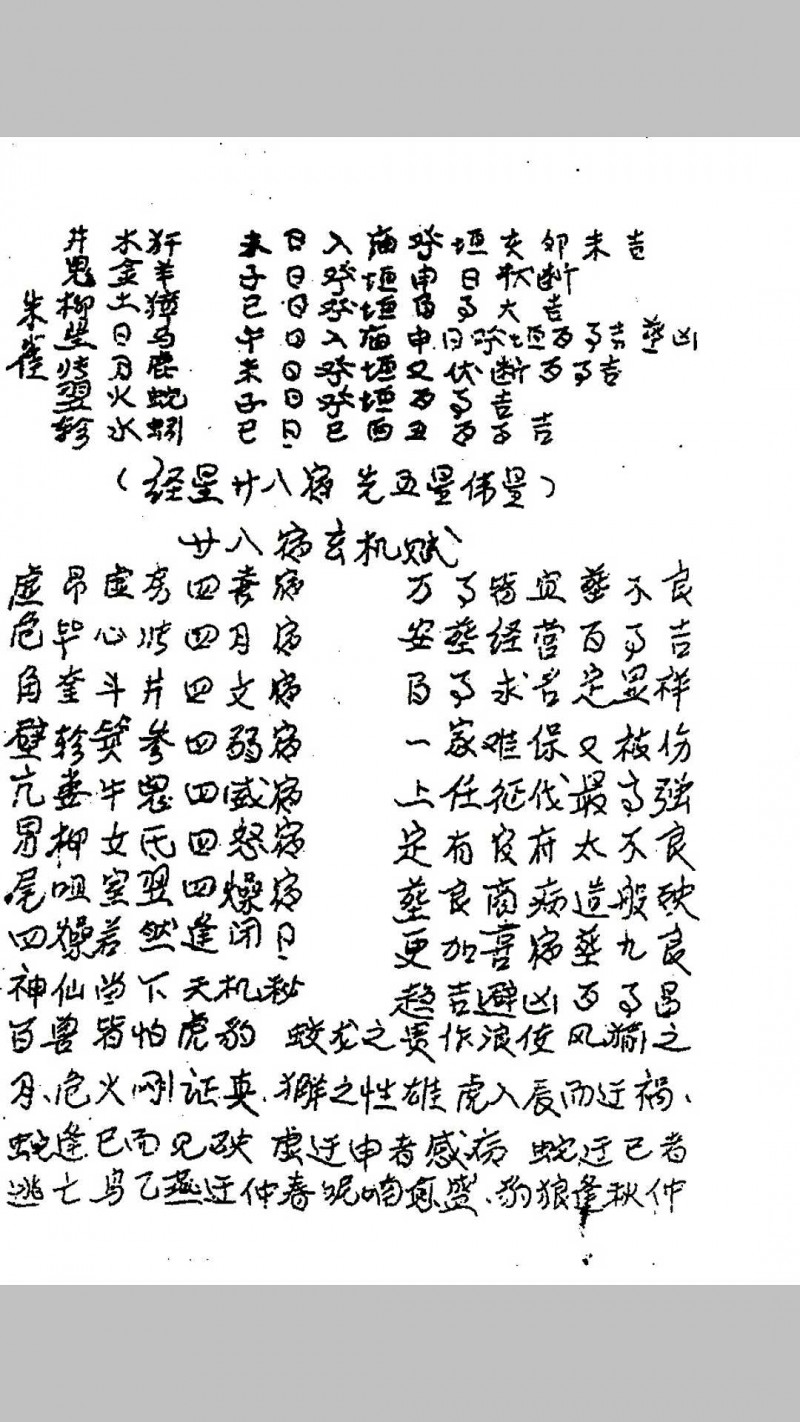 井木犴 未日入庙 垣亥卯未吉
鬼金羊 子日 垣申日伏断
朱雀
柳土獐 巳日 垣百事大吉
星日马 午日入庙申日 垣百事吉葬凶
张月鹿 未日 垣又伏断百事吉
翌火蛇 子日 垣百事吉
轸水蚓 巳日巳酉丑百事吉
(经星廿八宿 先五星伟星)
廿八宿玄机赋
虚昴虚房四喜宿 万事皆宜葬不良
危毕心张四月宿 安葬经营百事吉
角奎斗井四文宿 百事求名定显祥
壁轸箕参四弱宿 一家难保又被伤
亢娄牛鬼四威宿 上任征伐最高强
胃柳女氐四怒宿 定有官府太不良
尾咀室翌四燥宿 葬良商病造般殃
四燥若然逢闭日 更加喜宿葬九良
神仙当下天机秘 趋吉避凶百事昌
百兽皆怕虎豹 蛟龙之贵作浪使风 之
月、危火刚证真、獬之性雄虎入辰而迂祸、
蛇逢巳而见殃 虚迂申者感病 蛇迂巳者
逃亡鸟乙燕迂仲春呢喃愈盛、豹狼逢秋仲